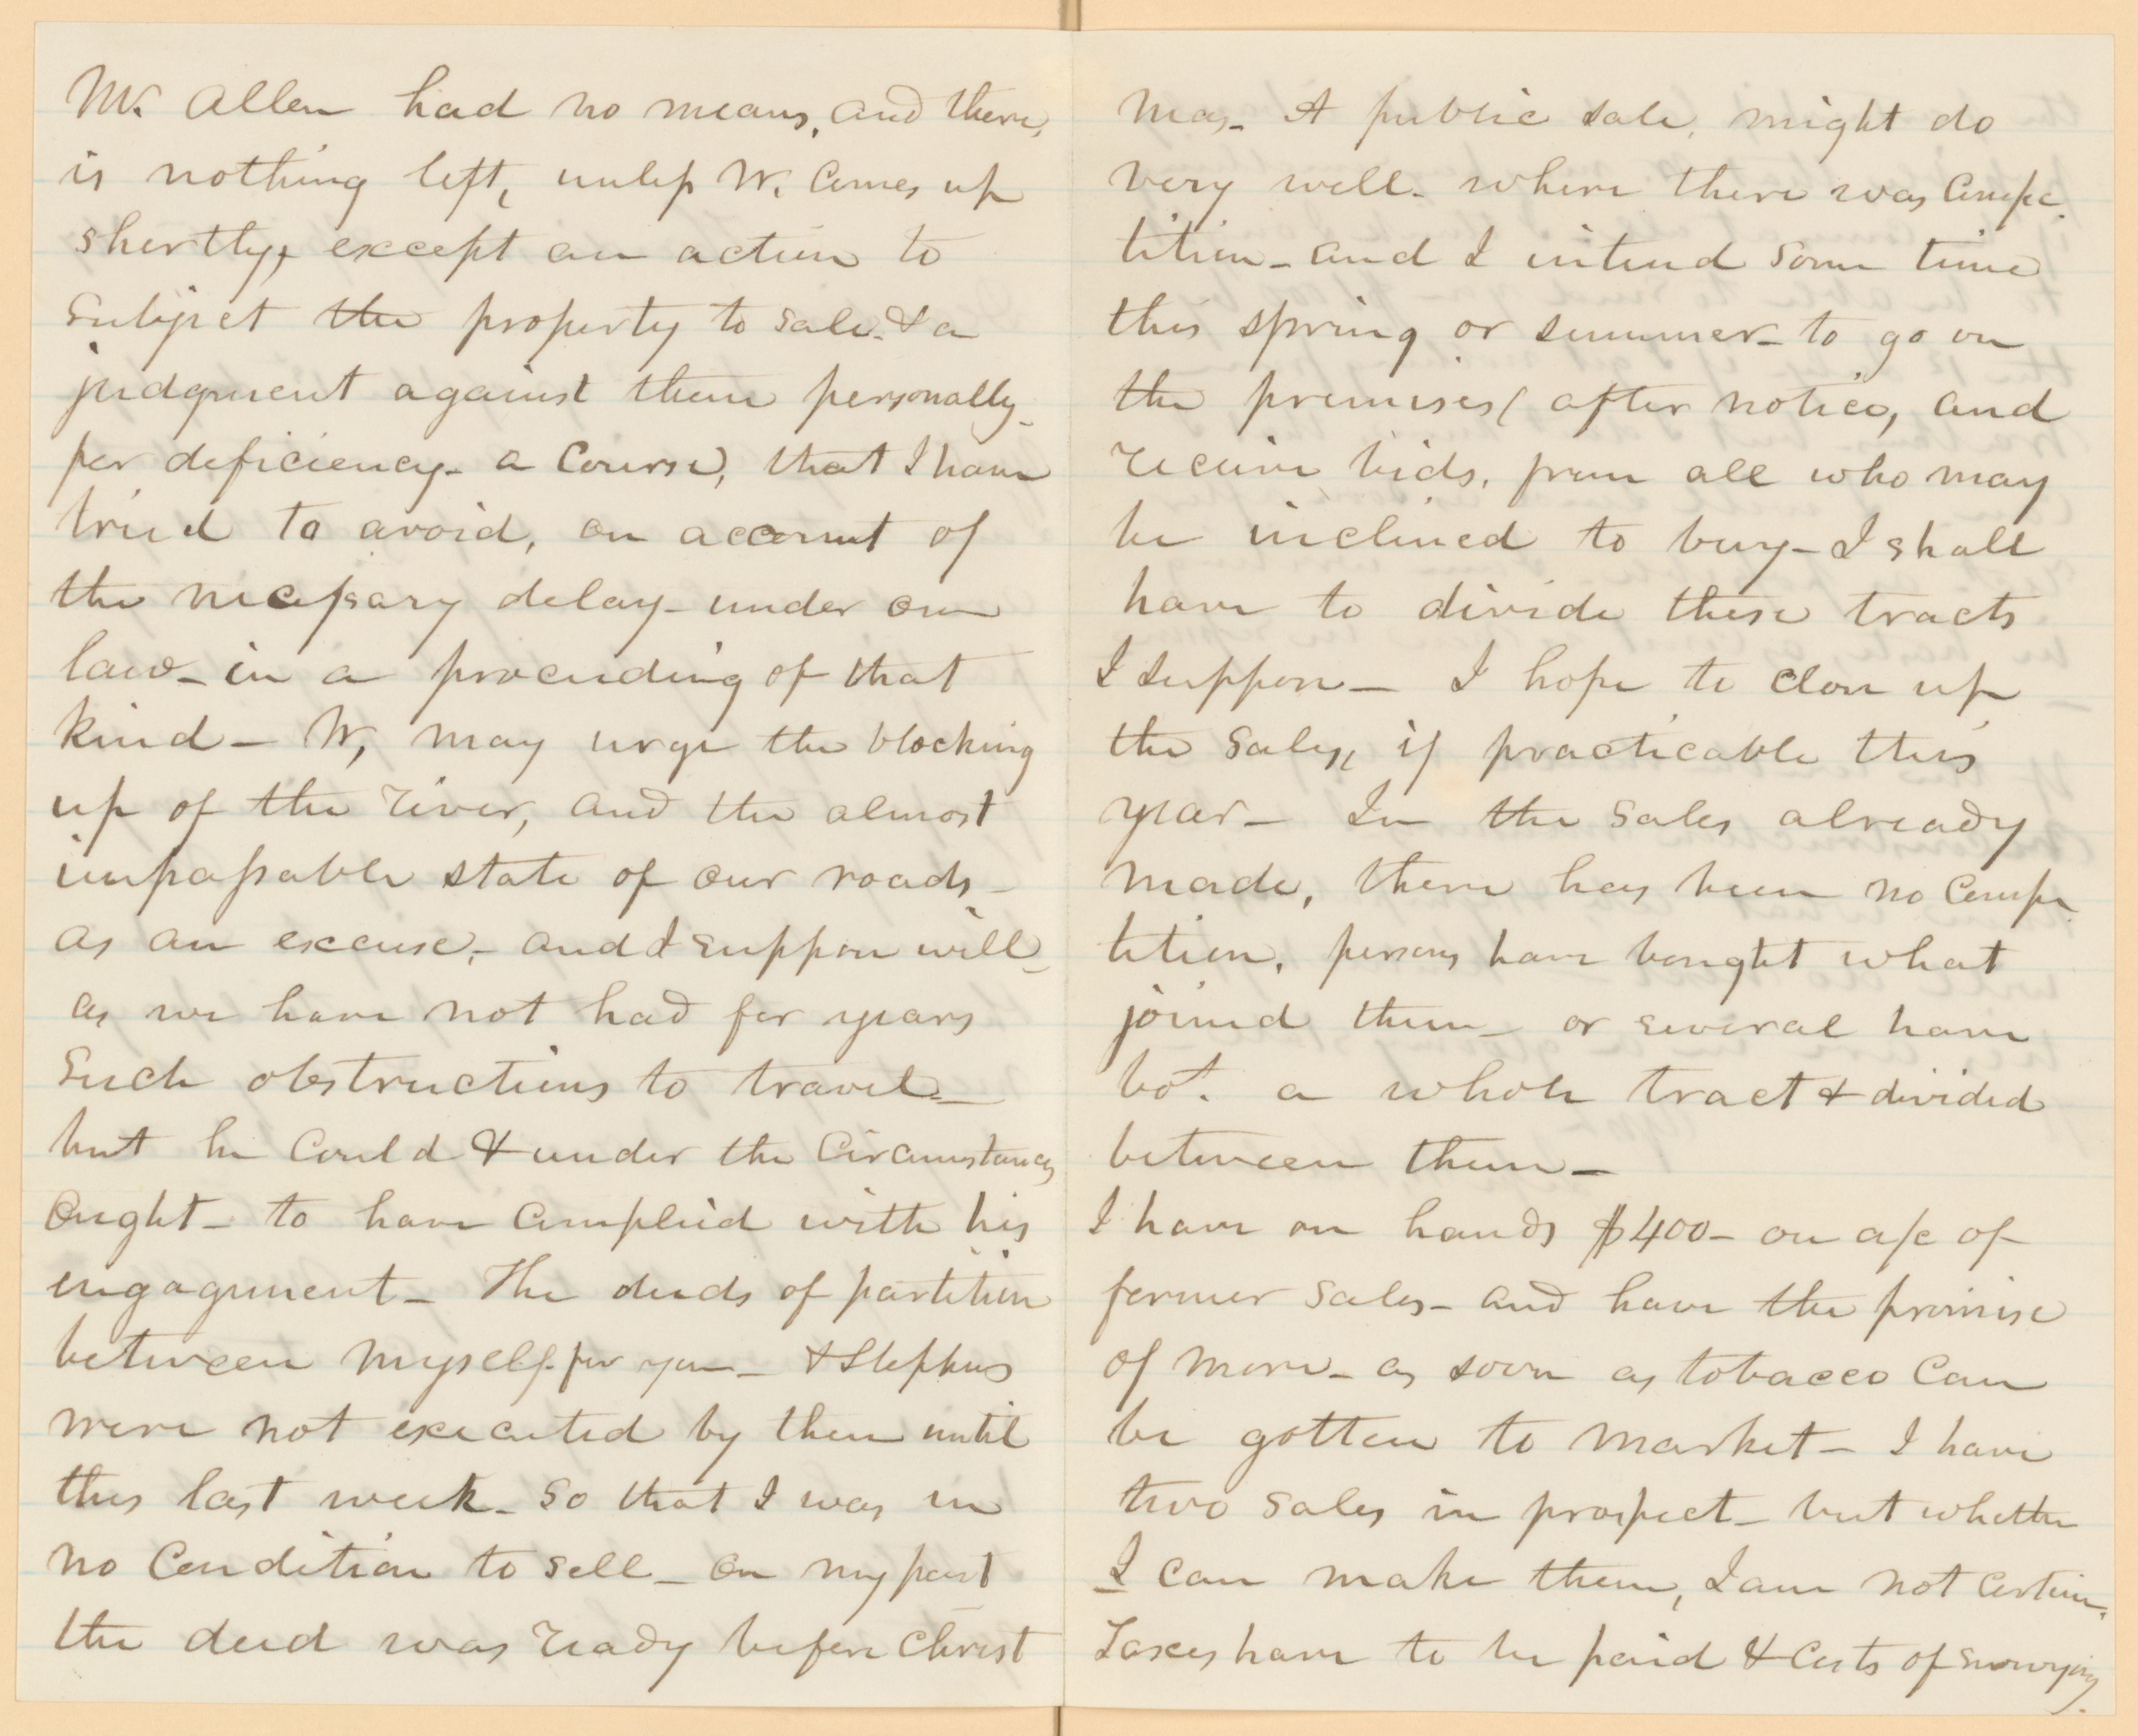 Mr. Allen had no means, and there,
is nothing left, unless W. Comes up
shortly, except an action to
subject the property to sale. & a
judgment against them personally-
for deficiency- a Course, that I have
tried to avoid, on account of
the necessary delay- under our
law- in a proceeding of that
kind- W, may urge the blocking
up of the river, and the almost
impassable state of our roads-
as an excuse,- and I suppose will-
as we have not had for years
such obstructions to travel-
but he Could & under the Circumstances
Ought- to have Complied with his
engagement- The deeds of partition
between myself- for you- & Stephens
were not executed by them until
this last week- so that I was in
no Condition to sell- On my part
the deed was ready before Christ
mas- A public sale, might do
very well- where there was Compe-
tition- and I intend some time
this spring or summer- to go on
the premises ( after notice, and
receive bids, from all who may
be inclined to buy- I shall
have to divide these tracts
I suppose- I hope to close up
the sales, if practicable this
year- In the sales already
made, there has been no Compe-
tition, persons have bought what
joined them- or several have
bot. a whole tract & divided
between them-
I have on hands $400- on a/c of
former sales- and have the promise
of more- as soon as tobacco Can
be gotten to market- I have
two sales in prospect- but whether
I can make them, I am not Certain.
Taxes have to be paid & Costs of surveying.